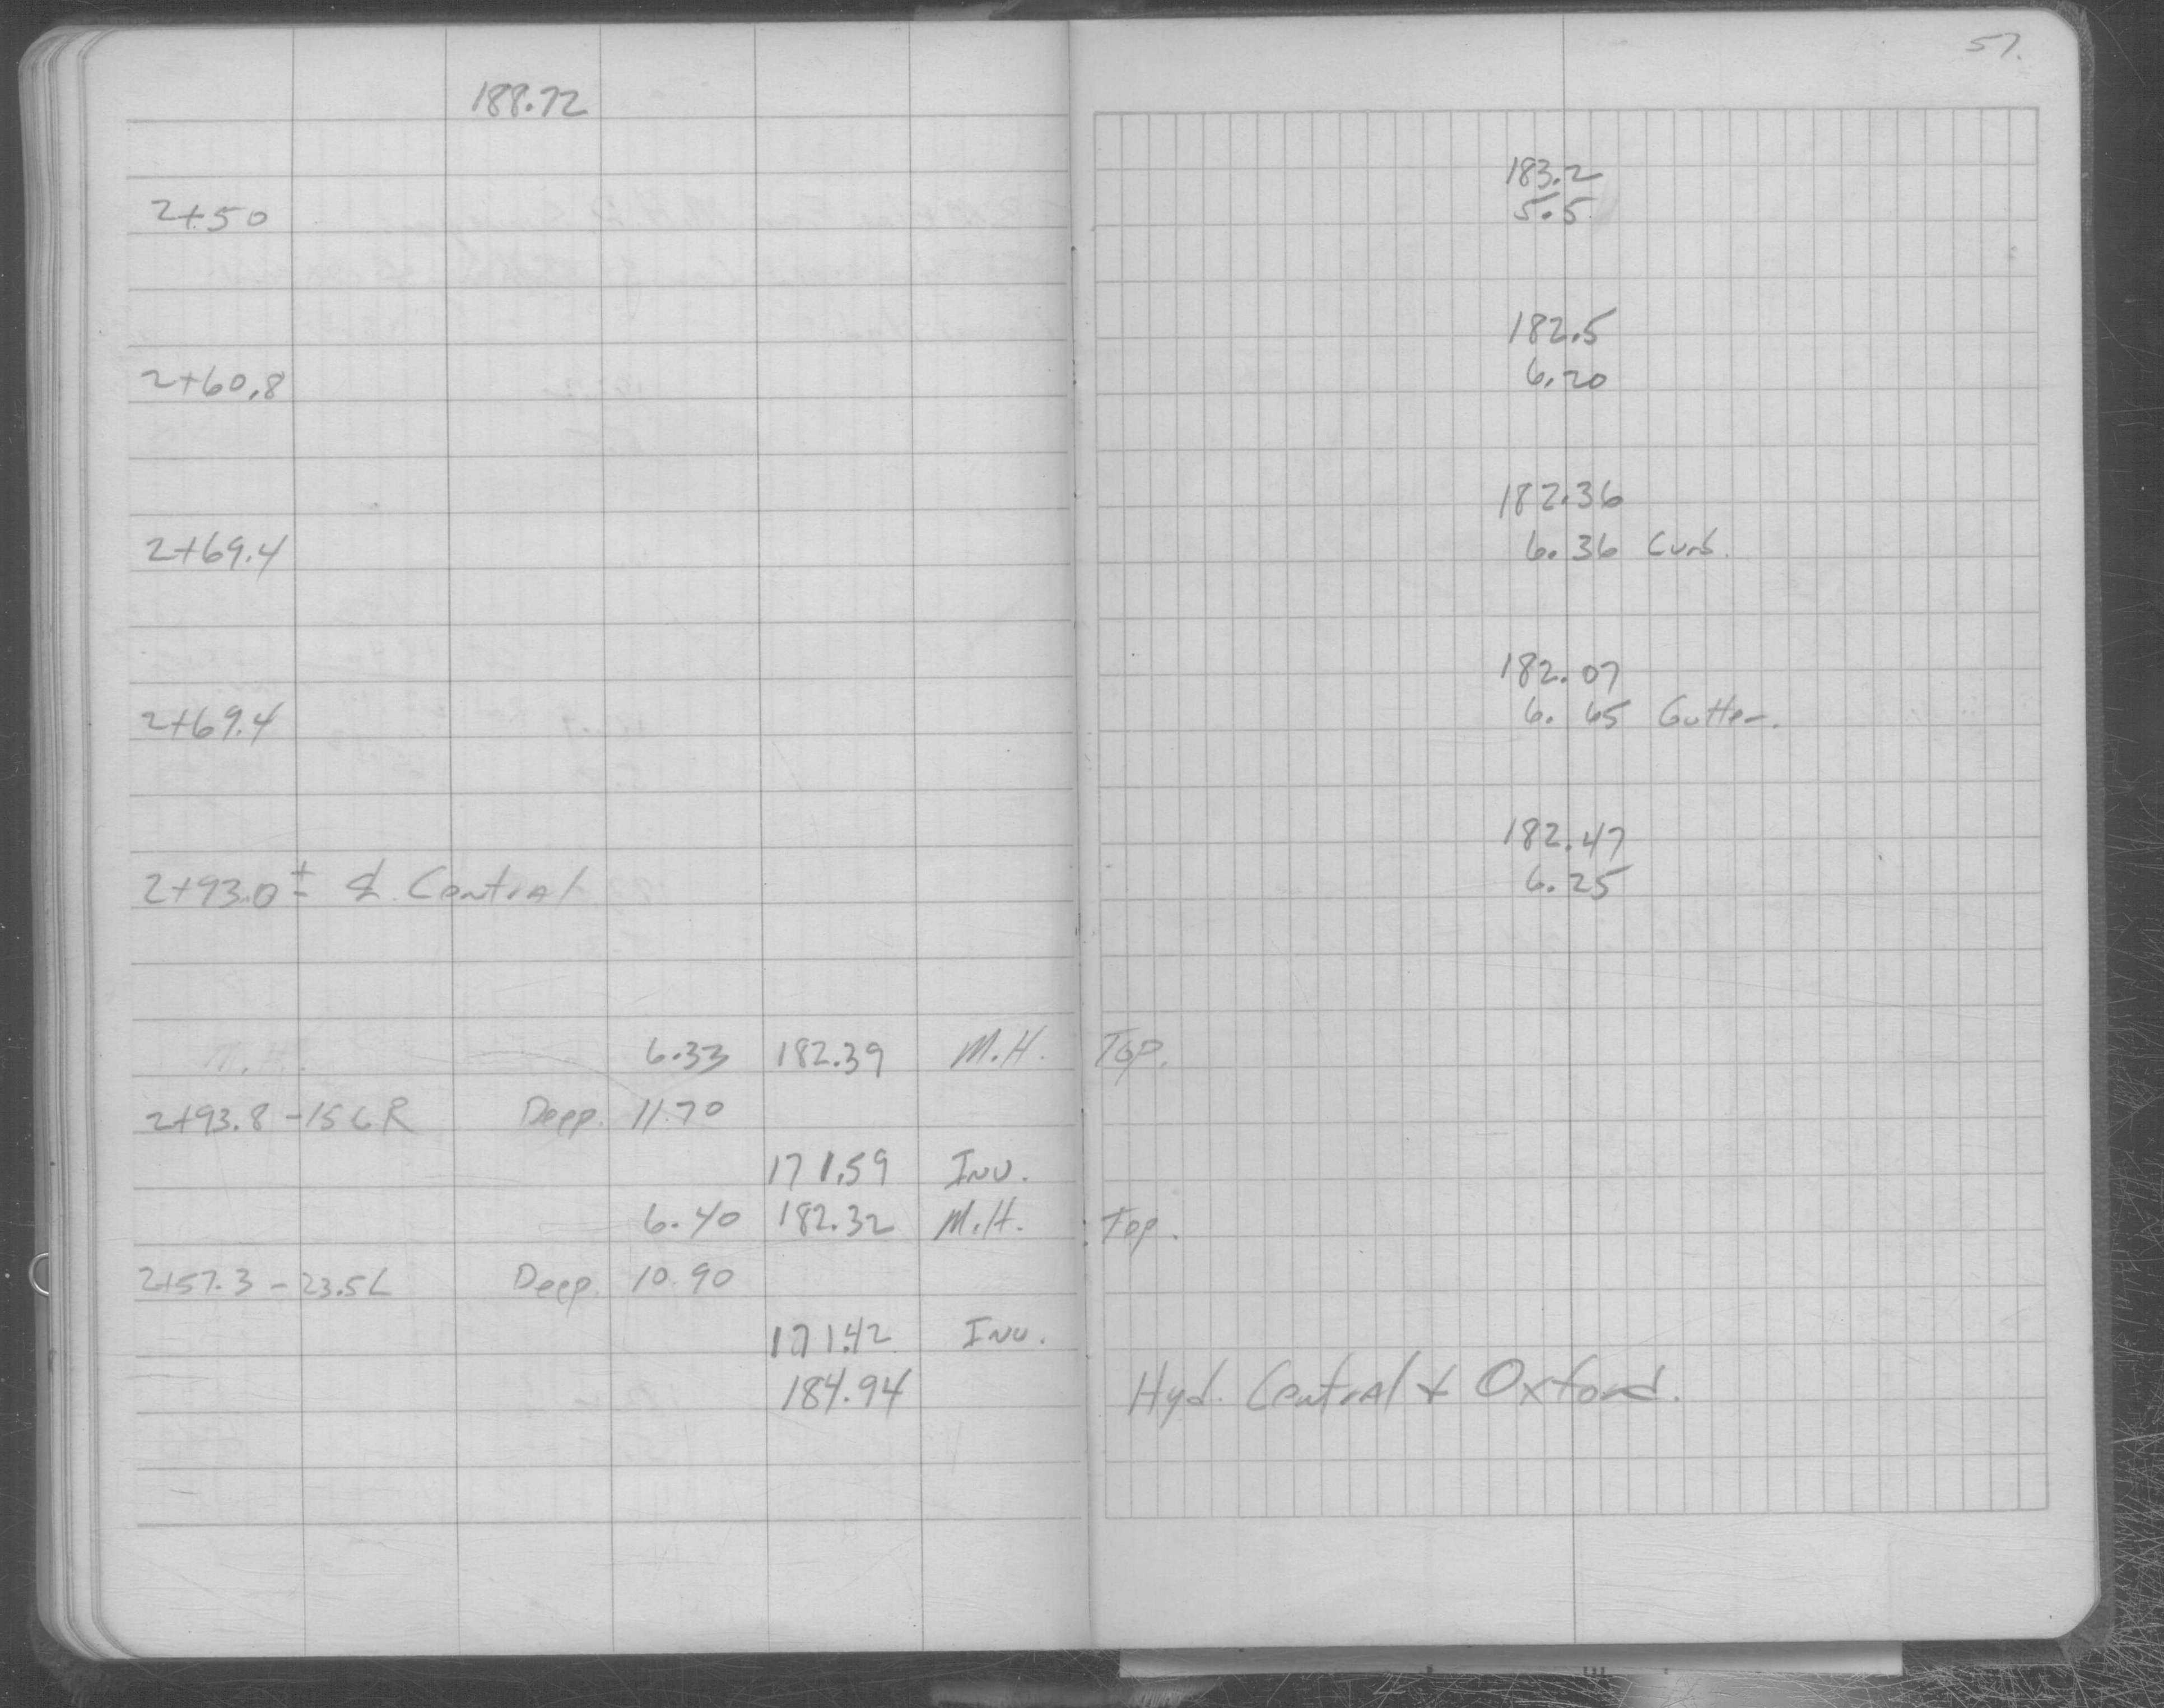 57.
188.72
183.2
2+50 5.5
182.5
2+60.8 6.20
182.36
2+69.4 6.36 Curb.
182.07
2+69.4 6.65 Gutter.
182.47
2+93.0± ℄ Central 6.25
M.H. 6.33 182.39 M.H. Top.
2+93.8 - 15 L R Deep. 11.70
171.59 Inv.
6.40 182.32 M.H. Top.
2+57.3 - 23.5L Deep. 10.90
171.42 Inv.
184.94 Hyd. Central & Oxford.